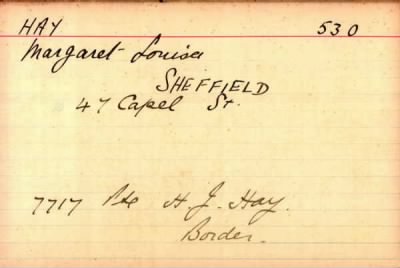 HAY 530
Margaret Louisa
SHEFFIELD
47 Capel St.
7717 Pte H. J. Hay.
Border.